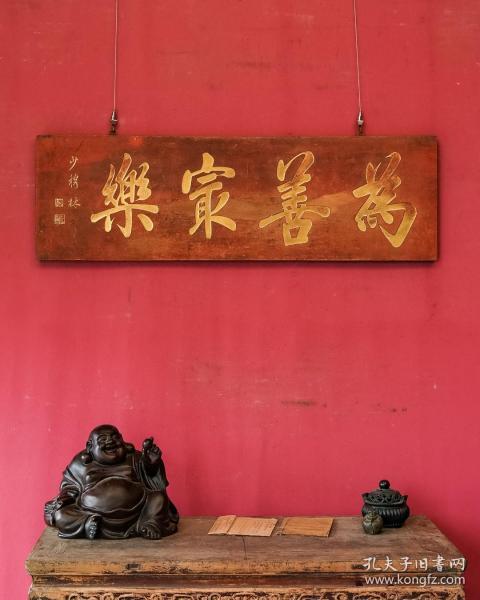 為善㝡樂
少穆林
孔夫子旧书网
www.kongfz.com